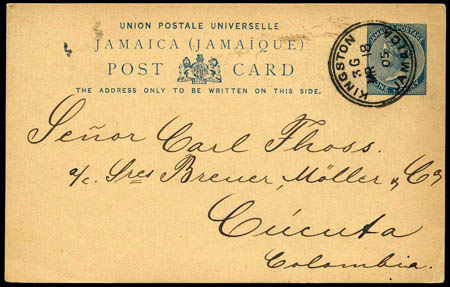 UNION POSTALE UNIVERSELLE
JAMAICA (JAMAÏQUE)
POST CARD
THE ADDRESS ONLY TO BE WRITTEN ON THIS SIDE.
KINGSTON
JAMAICA
3 G 18
05
Señor Carl Thoss.
a/c. Sres Breuer, Möller & Co
Cúcuta
Colombia.